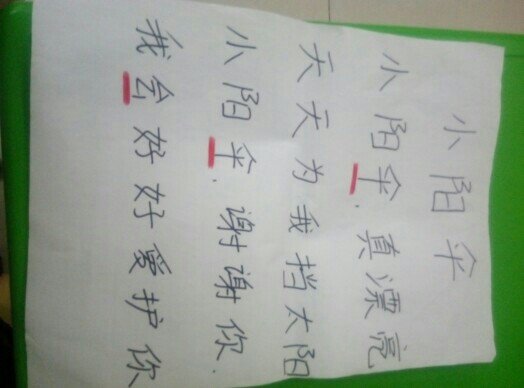 小阳伞
小阳伞.真漂亮
天天为我挡太阳
小阳伞.谢谢你.
我会好好爱护你